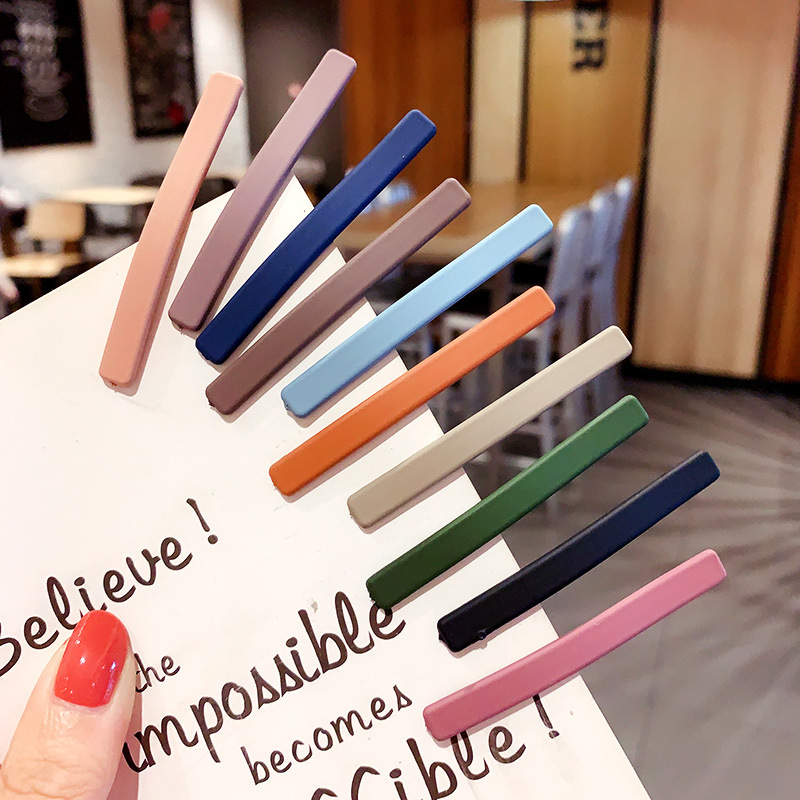 Believe!
the
impossible
becomes
ER